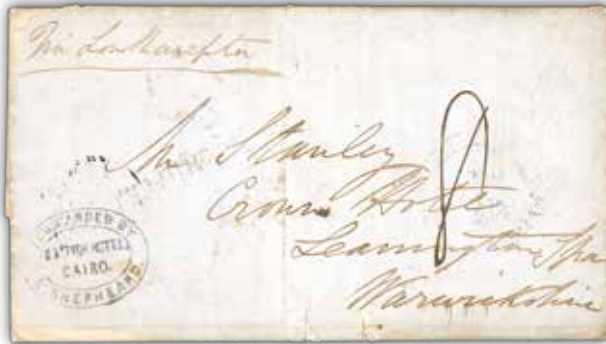 Via Southampton
Mr Stanley
Crown Hotel
Leamington Spa
Warwickshire
8
FORWARDED BY
HOTEL
CAIRO.
SHEPHEARD